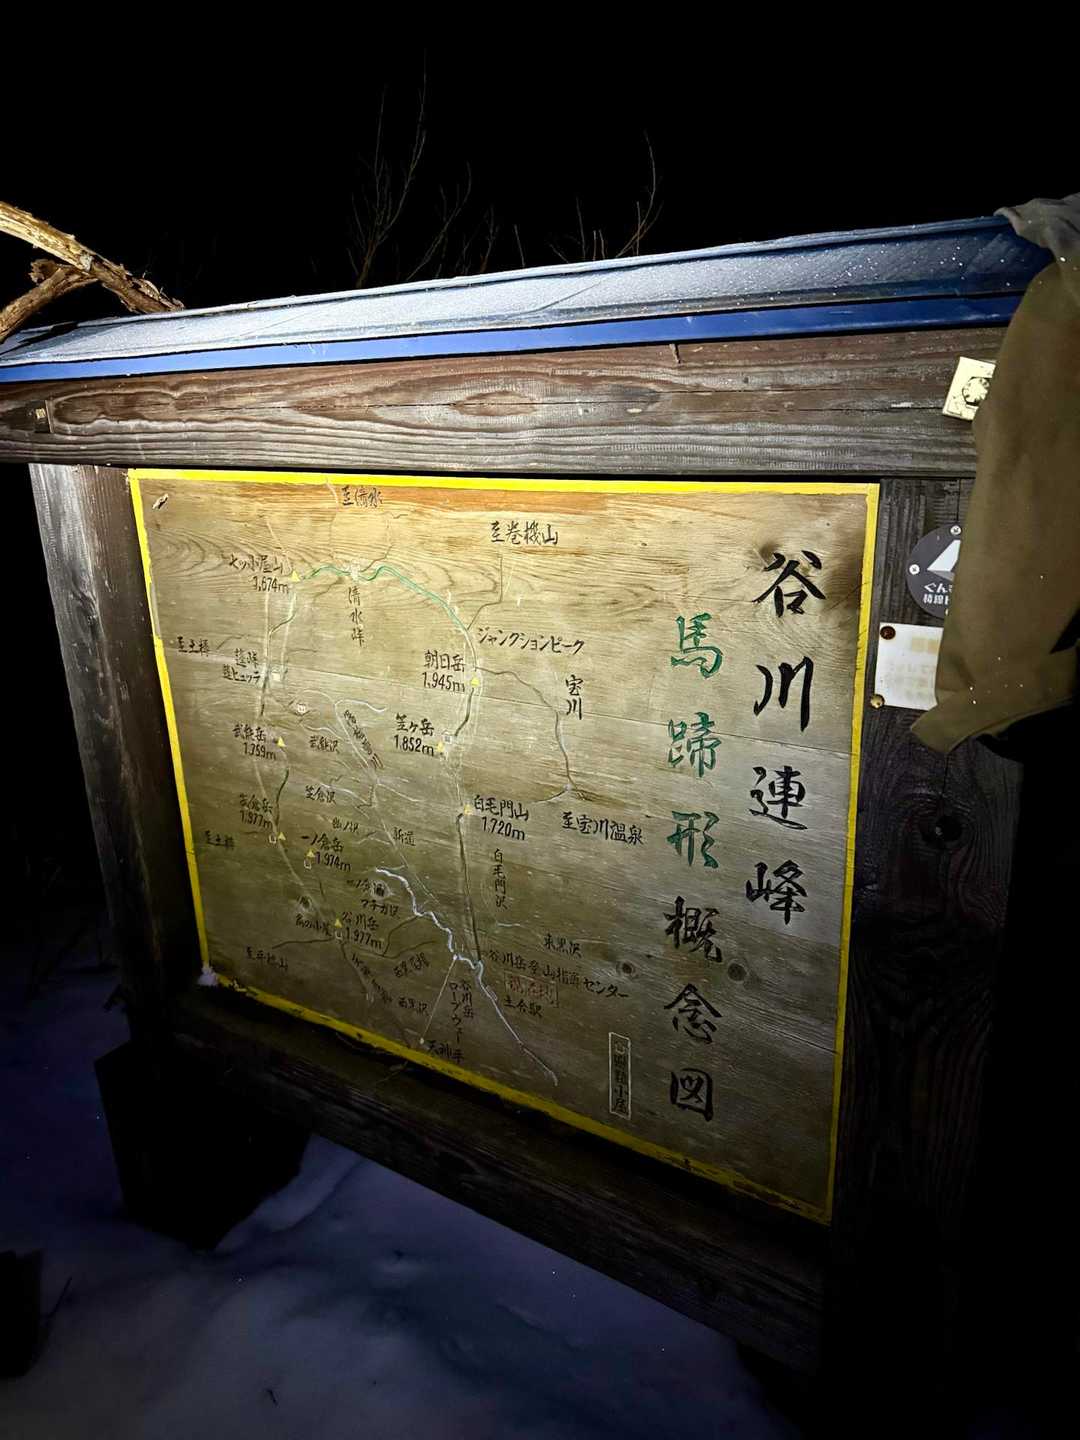 谷川連峰
馬蹄形概念図
至清水
至巻機山
七ツ小屋山
1,674m
清水峠
ジャンクションピーク
至土樽
蓬峠
蓬ヒュッテ
朝日岳
1,945m
宝川
笠ヶ岳
1,852m
武能岳
1,759m
武能沢
白毛門山
1,720m
至宝川温泉
笠倉沢
1,977m
至土樽
一ノ倉岳
1,974m
新道
白毛門沢
マチガ沢
谷川岳
1,977m
肩の小屋
東黒沢
谷川岳登山指導センター
土合駅
谷川岳
ロープウェー
西黒沢
天神平
ぐんま
稜線ト